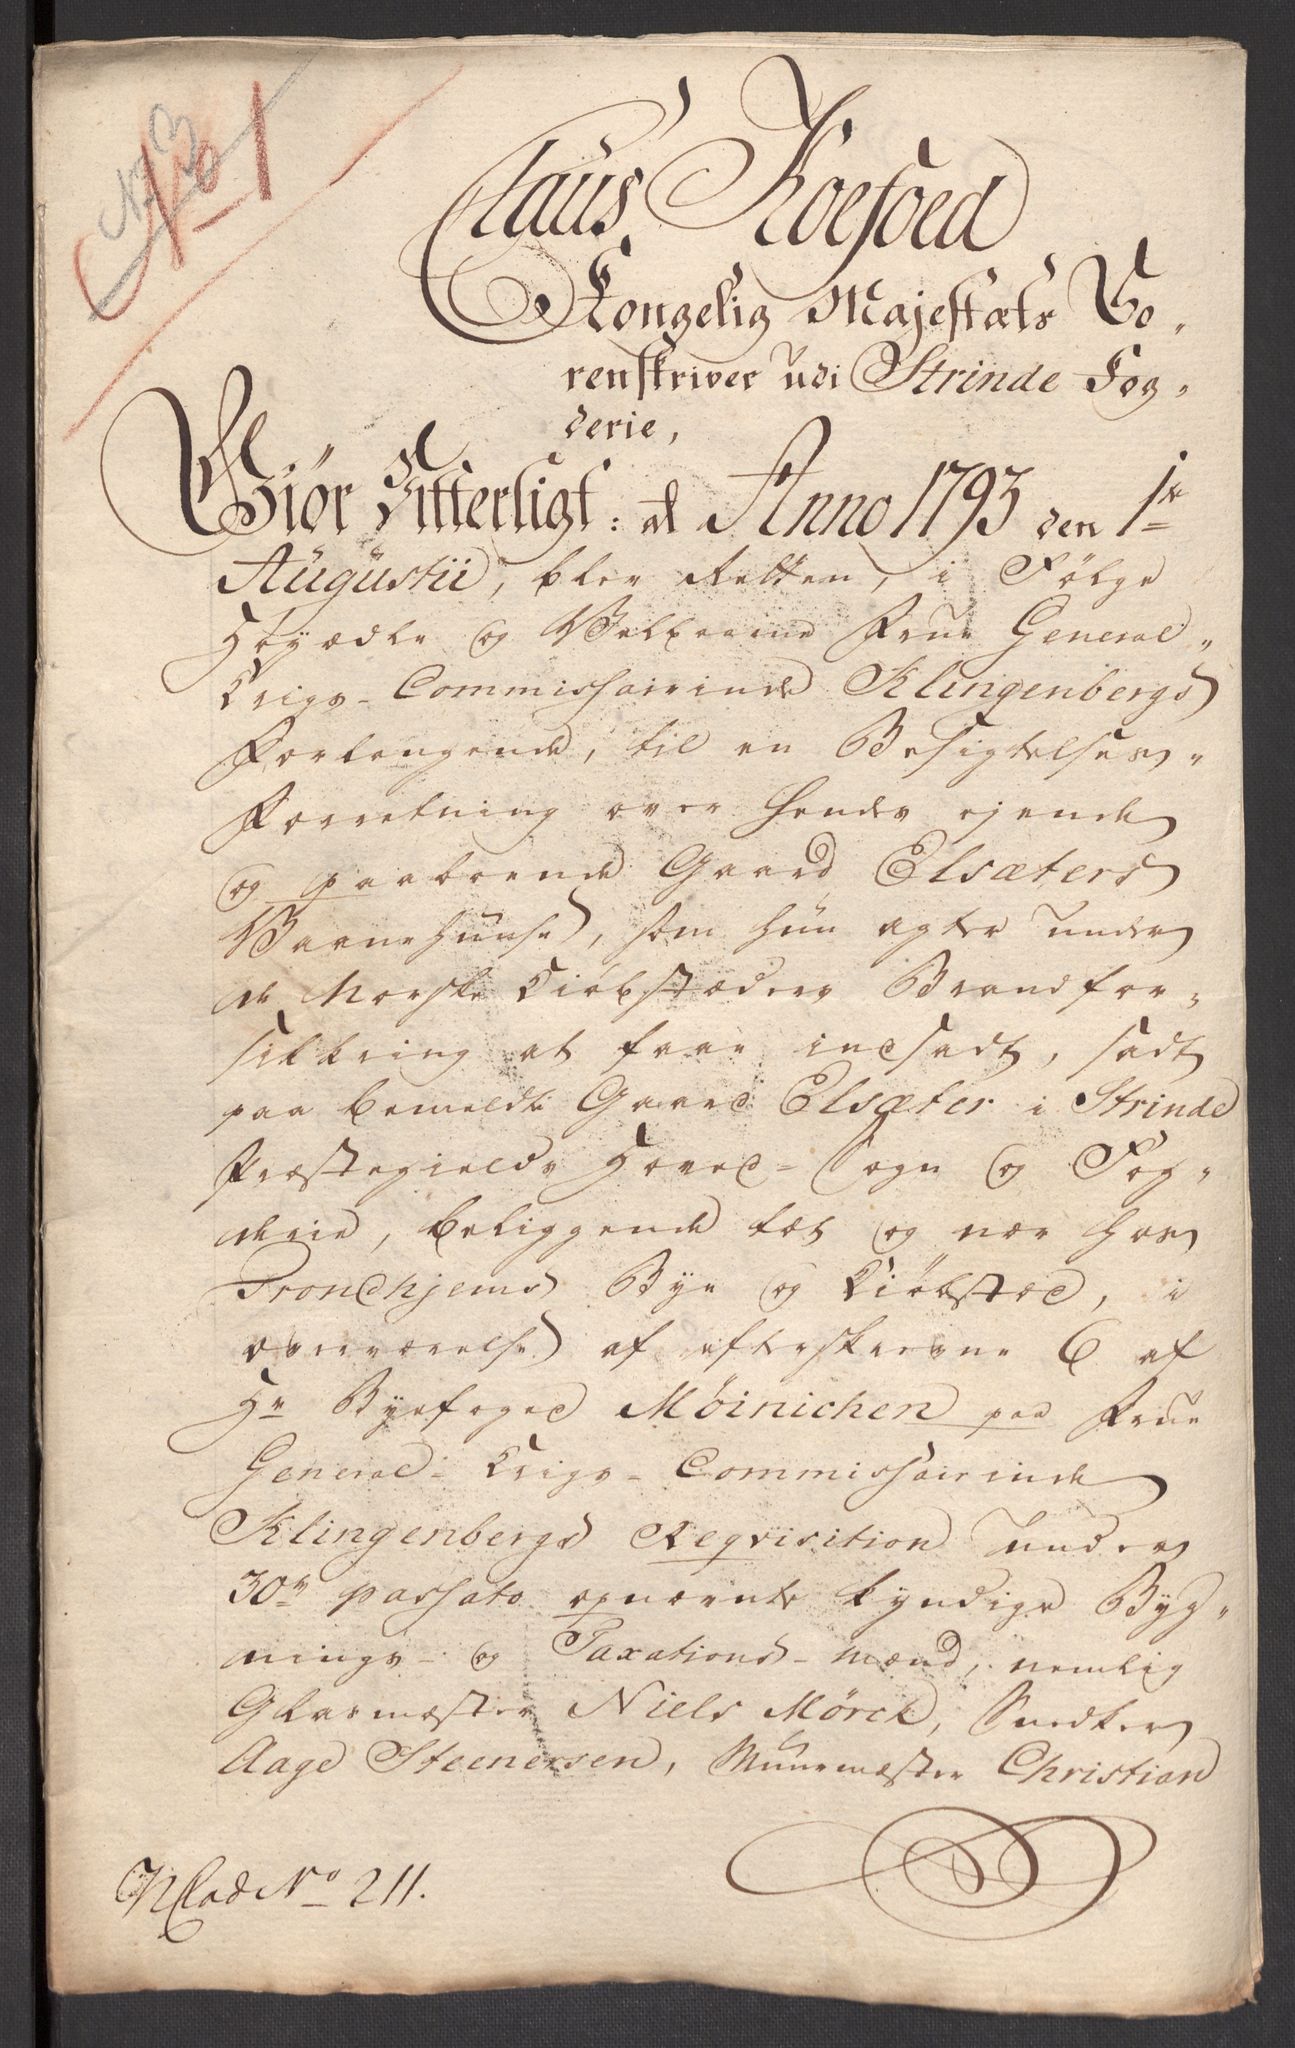 No 1
No 3
Claus Koefoed
Kongelig Majestæts So,
renskriver udi Strinde Fog,
derie,
Giør Vitterligt: at Anno 1793 den 1te
Augustii, blev Retten, i Følge
Høyædle og Velbaarne Frue General,
Krigs-Commissairinde Klingenbergs
Forlangende, til en Besigtelses,
Forretning over hendes ejende
og paaboende Gaard Elsæters
Vaanehuuse, som hun agter under
de Norske Kiøbstæders Brandfor,
sikkring at faae indsadt, sadt
paa bemeldte Gaard Elsæter i Strinde
Præstegields Hoved-Sogn og Fog,
derie, beliggende tæt og nær hos
Trondhjems Bye og Kiøbstæd, i
overværelse af efterskrevne 6 af
Hr Byefoged Möinichen paa Frue
General-Krigs-Commissairinde
Klingenbergs Reqvisition under
30te passato opnævnte kyndige Byg,
nings- og Taxations-mænd, nemlig
Glarmæster Niels Mörch, Snedker
Aage Steenersen, Muurmæster Christian
No 211.